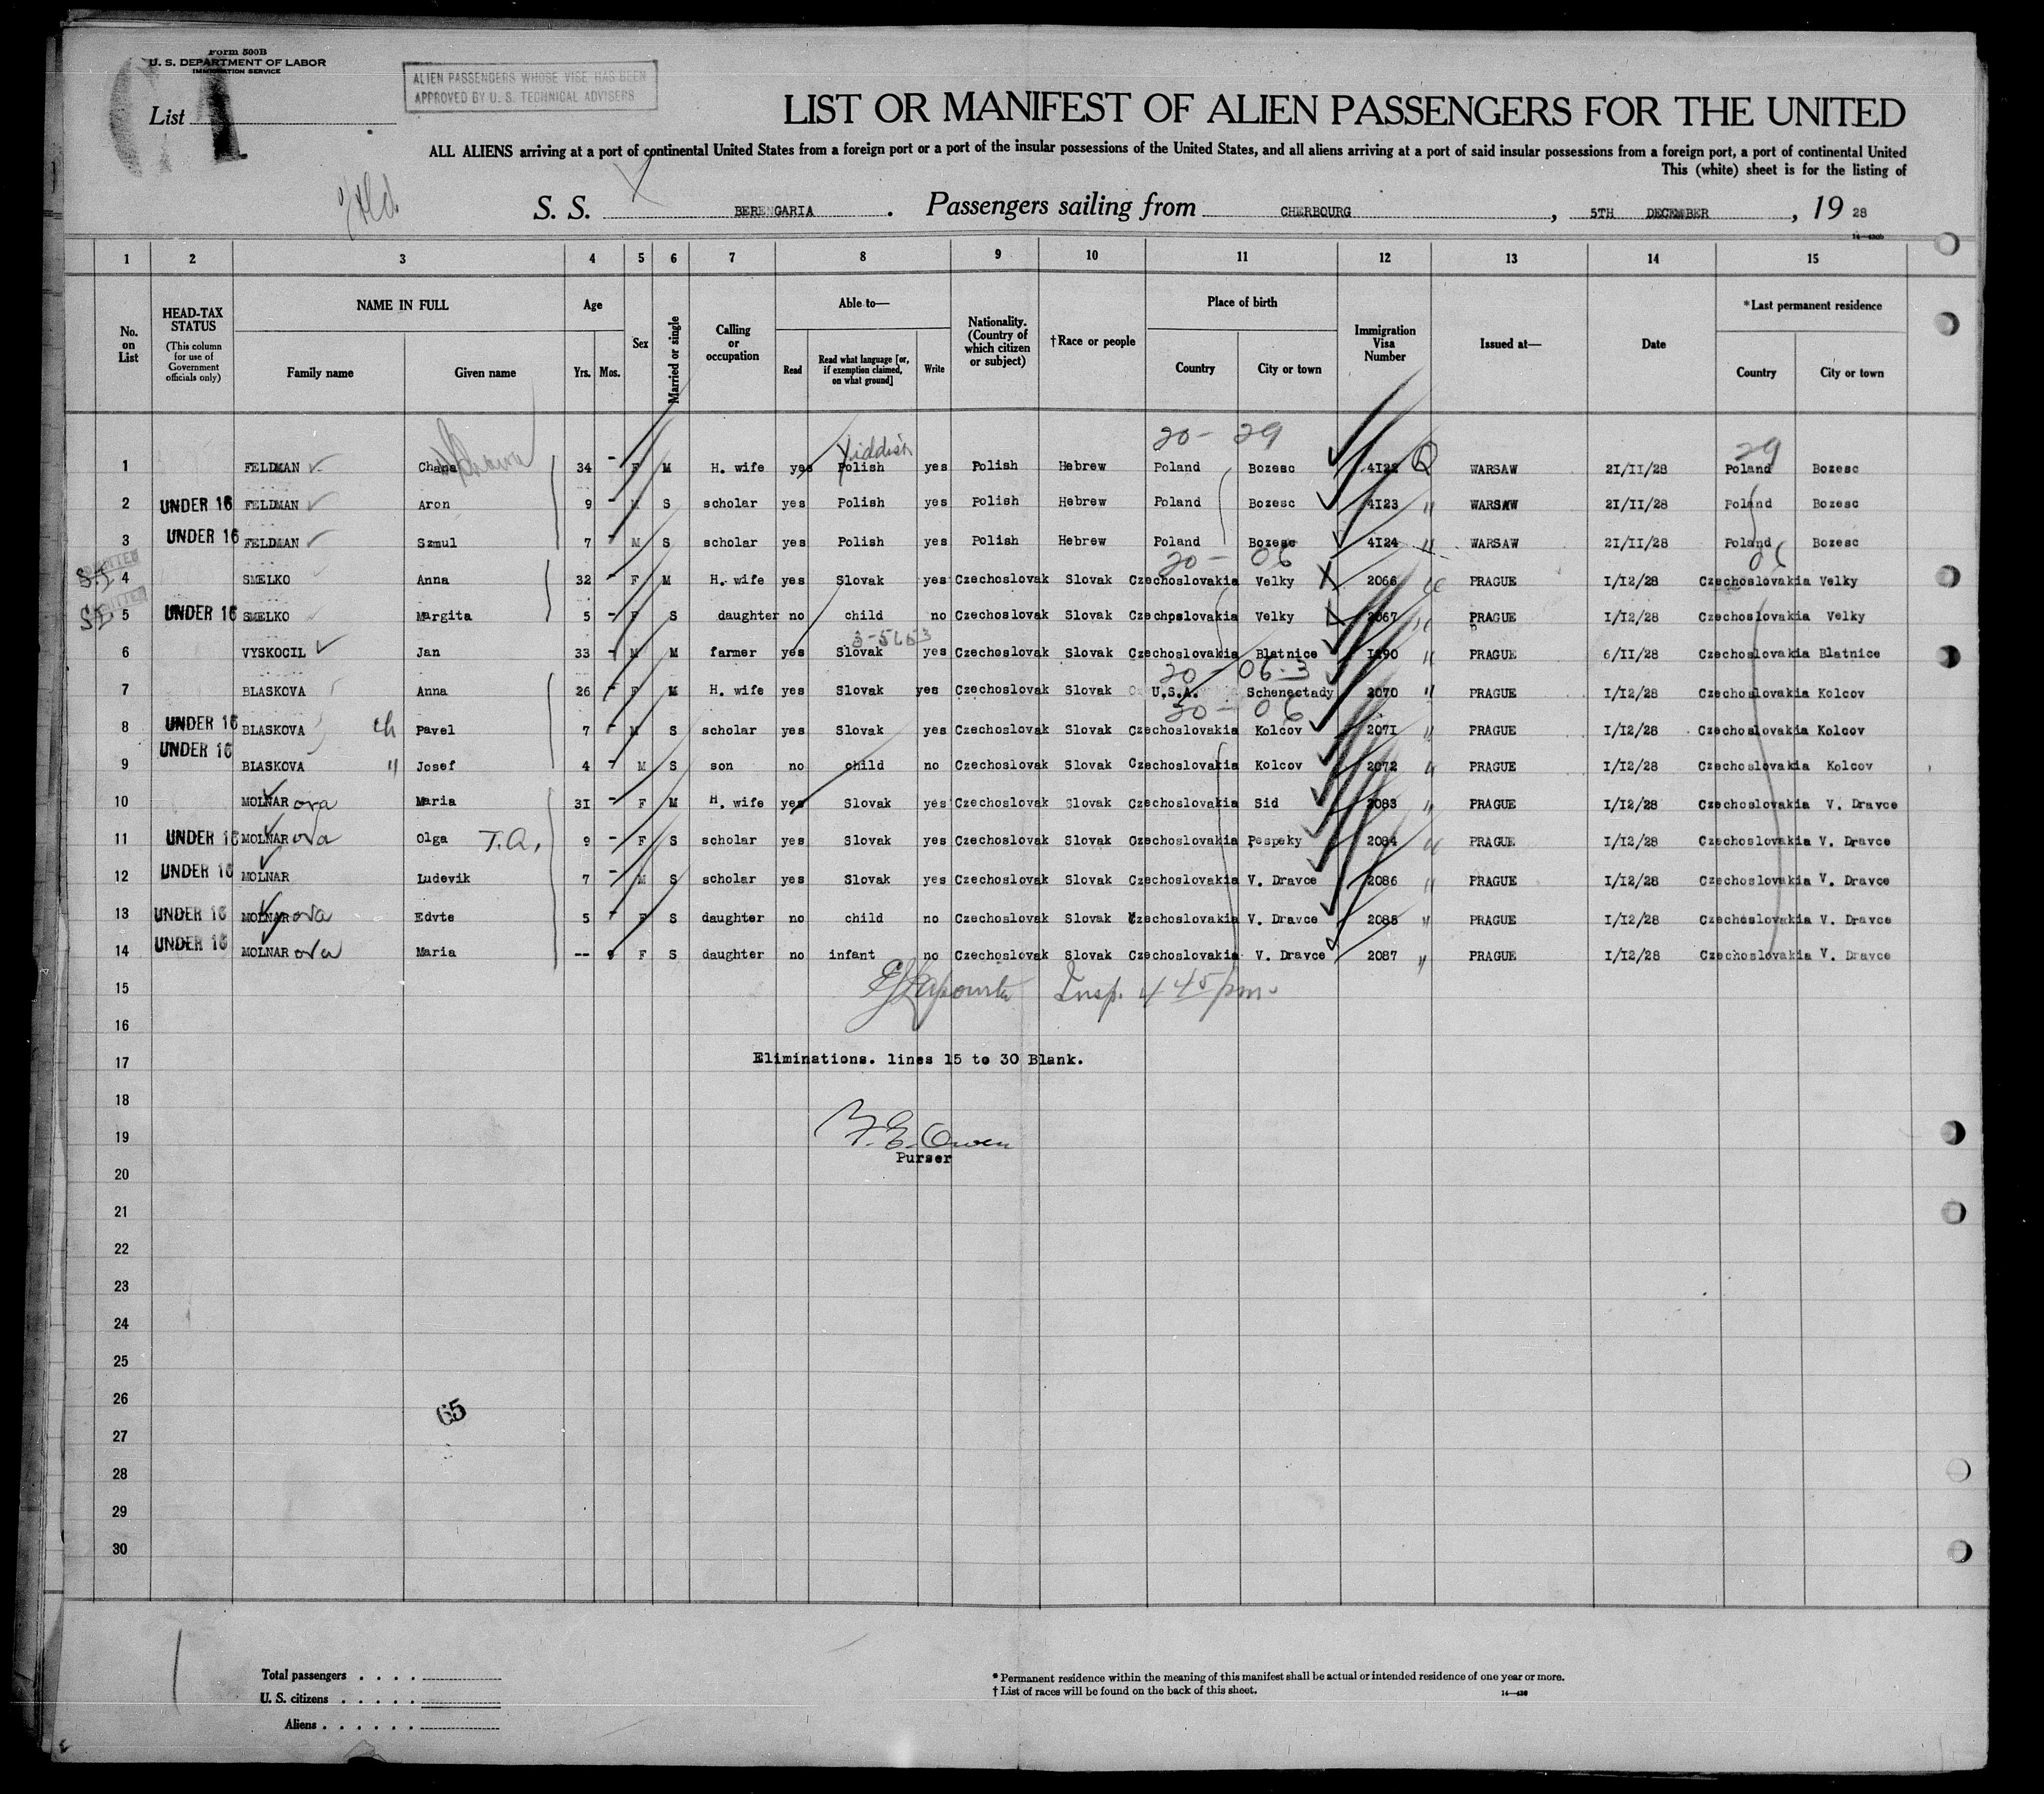 Form 500B
U. S. DEPARTMENT OF LABOR
IMMIGRATION SERVICE
ALIEN PASSENGERS WHOSE VISE HAS BEEN
APPROVED BY U. S. TECHNICAL ADVISERS
List
LIST OR MANIFEST OF ALIEN PASSENGERS FOR THE UNITED
ALL ALIENS arriving at a port of continental United States from a foreign port or a port of the insular possessions of the United States, and all aliens arriving at a port of said insular possessions from a foreign port, a port of continental United
This (white) sheet is for the listing of
S. S. BERENGARIA . Passengers sailing from CHERBOURG , 5TH DECEMBER , 19 28
1 2 3 4 5 6 7 8 9 10 11 12 13 14 15
No. on List
HEAD-TAX STATUS
(This column for use of Government officials only)
NAME IN FULL
Family name
Given name
Age
Yrs. Mos.
Sex
Married or single
Calling or occupation
Able to—
Read
Read what language [or, if exemption claimed, on what ground]
Write
Nationality. (Country of which citizen or subject)
†Race or people
Place of birth
Country
City or town
Immigration Visa Number
Issued at—
Date
*Last permanent residence
Country
City or town
20 - 29
Yiddish
29
1 FELDMAN Chana 34 - F M H. wife yes Polish yes Polish Hebrew Poland Bozesc 4122 WARSAW 21/11/28 Poland Bozesc
2 UNDER 16 FELDMAN Aron 9 - M S scholar yes Polish yes Polish Hebrew Poland Bozesc 4123 " WARSAW 21/11/28 Poland Bozesc
3 UNDER 16 FELDMAN Szmul 7 - M S scholar yes Polish yes Polish Hebrew Poland Bozesc 4124 " WARSAW 21/11/28 Poland Bozesc
20 - 06
06
S.I. 4 SMELKO Anna 32 - F M H. wife yes Slovak yes Czechoslovak Slovak Czechoslovakia Velky 2066 " PRAGUE 1/12/28 Czechoslovakia Velky
S.I. 5 UNDER 16 SMELKO Margita 5 - F S daughter no child no Czechoslovak Slovak Czechoslovakia Velky 2067 " PRAGUE 1/12/28 Czechoslovakia Velky
6 VYSKOCIL Jan 33 - M M farmer yes Slovak yes Czechoslovak Slovak Czechoslovakia Blatnice 1890 " PRAGUE 6/11/28 Czechoslovakia Blatnice
20 - 06-3
7 BLASKOVA Anna 26 - F M H. wife yes Slovak yes Czechoslovak Slovak U.S.A. Schenectady 2070 " PRAGUE 1/12/28 Czechoslovakia Kolcov
20 - 06
8 UNDER 16 BLASKOVA ch Pavel 7 - M S scholar yes Slovak yes Czechoslovak Slovak Czechoslovakia Kolcov 2071 " PRAGUE 1/12/28 Czechoslovakia Kolcov
9 UNDER 16 BLASKOVA " Josef 4 - M S son no child no Czechoslovak Slovak Czechoslovakia Kolcov 2072 " PRAGUE 1/12/28 Czechoslovakia Kolcov
10 MOLNAR ova Maria 31 - F M H. wife yes Slovak yes Czechoslovak Slovak Czechoslovakia Sid 2083 " PRAGUE 1/12/28 Czechoslovakia V. Dravce
11 UNDER 16 MOLNAR ova Olga T.A. 9 - F S scholar yes Slovak yes Czechoslovak Slovak Czechoslovakia Pespeky 2084 " PRAGUE 1/12/28 Czechoslovakia V. Dravce
12 UNDER 16 MOLNAR Ludevik 7 - M S scholar yes Slovak yes Czechoslovak Slovak Czechoslovakia V. Dravce 2086 " PRAGUE 1/12/28 Czechoslovakia V. Dravce
13 UNDER 16 MOLNAR ova Edvte 5 - F S daughter no child no Czechoslovak Slovak Czechoslovakia V. Dravce 2085 " PRAGUE 1/12/28 Czechoslovakia V. Dravce
14 UNDER 16 MOLNAR ova Maria -- 9 F S daughter no infant no Czechoslovak Slovak Czechoslovakia V. Dravce 2087 " PRAGUE 1/12/28 Czechoslovakia V. Dravce
15 Insp. 4 45 pm.
16
17 Eliminations. lines 15 to 30 Blank.
18
19 Owen
Purser
20
21
22
23
24
25
26
65
27
28
29
30
Total passengers . . . .
U. S. citizens . . . . .
Aliens . . . . . .
* Permanent residence within the meaning of this manifest shall be actual or intended residence of one year or more.
† List of races will be found on the back of this sheet.
14—430